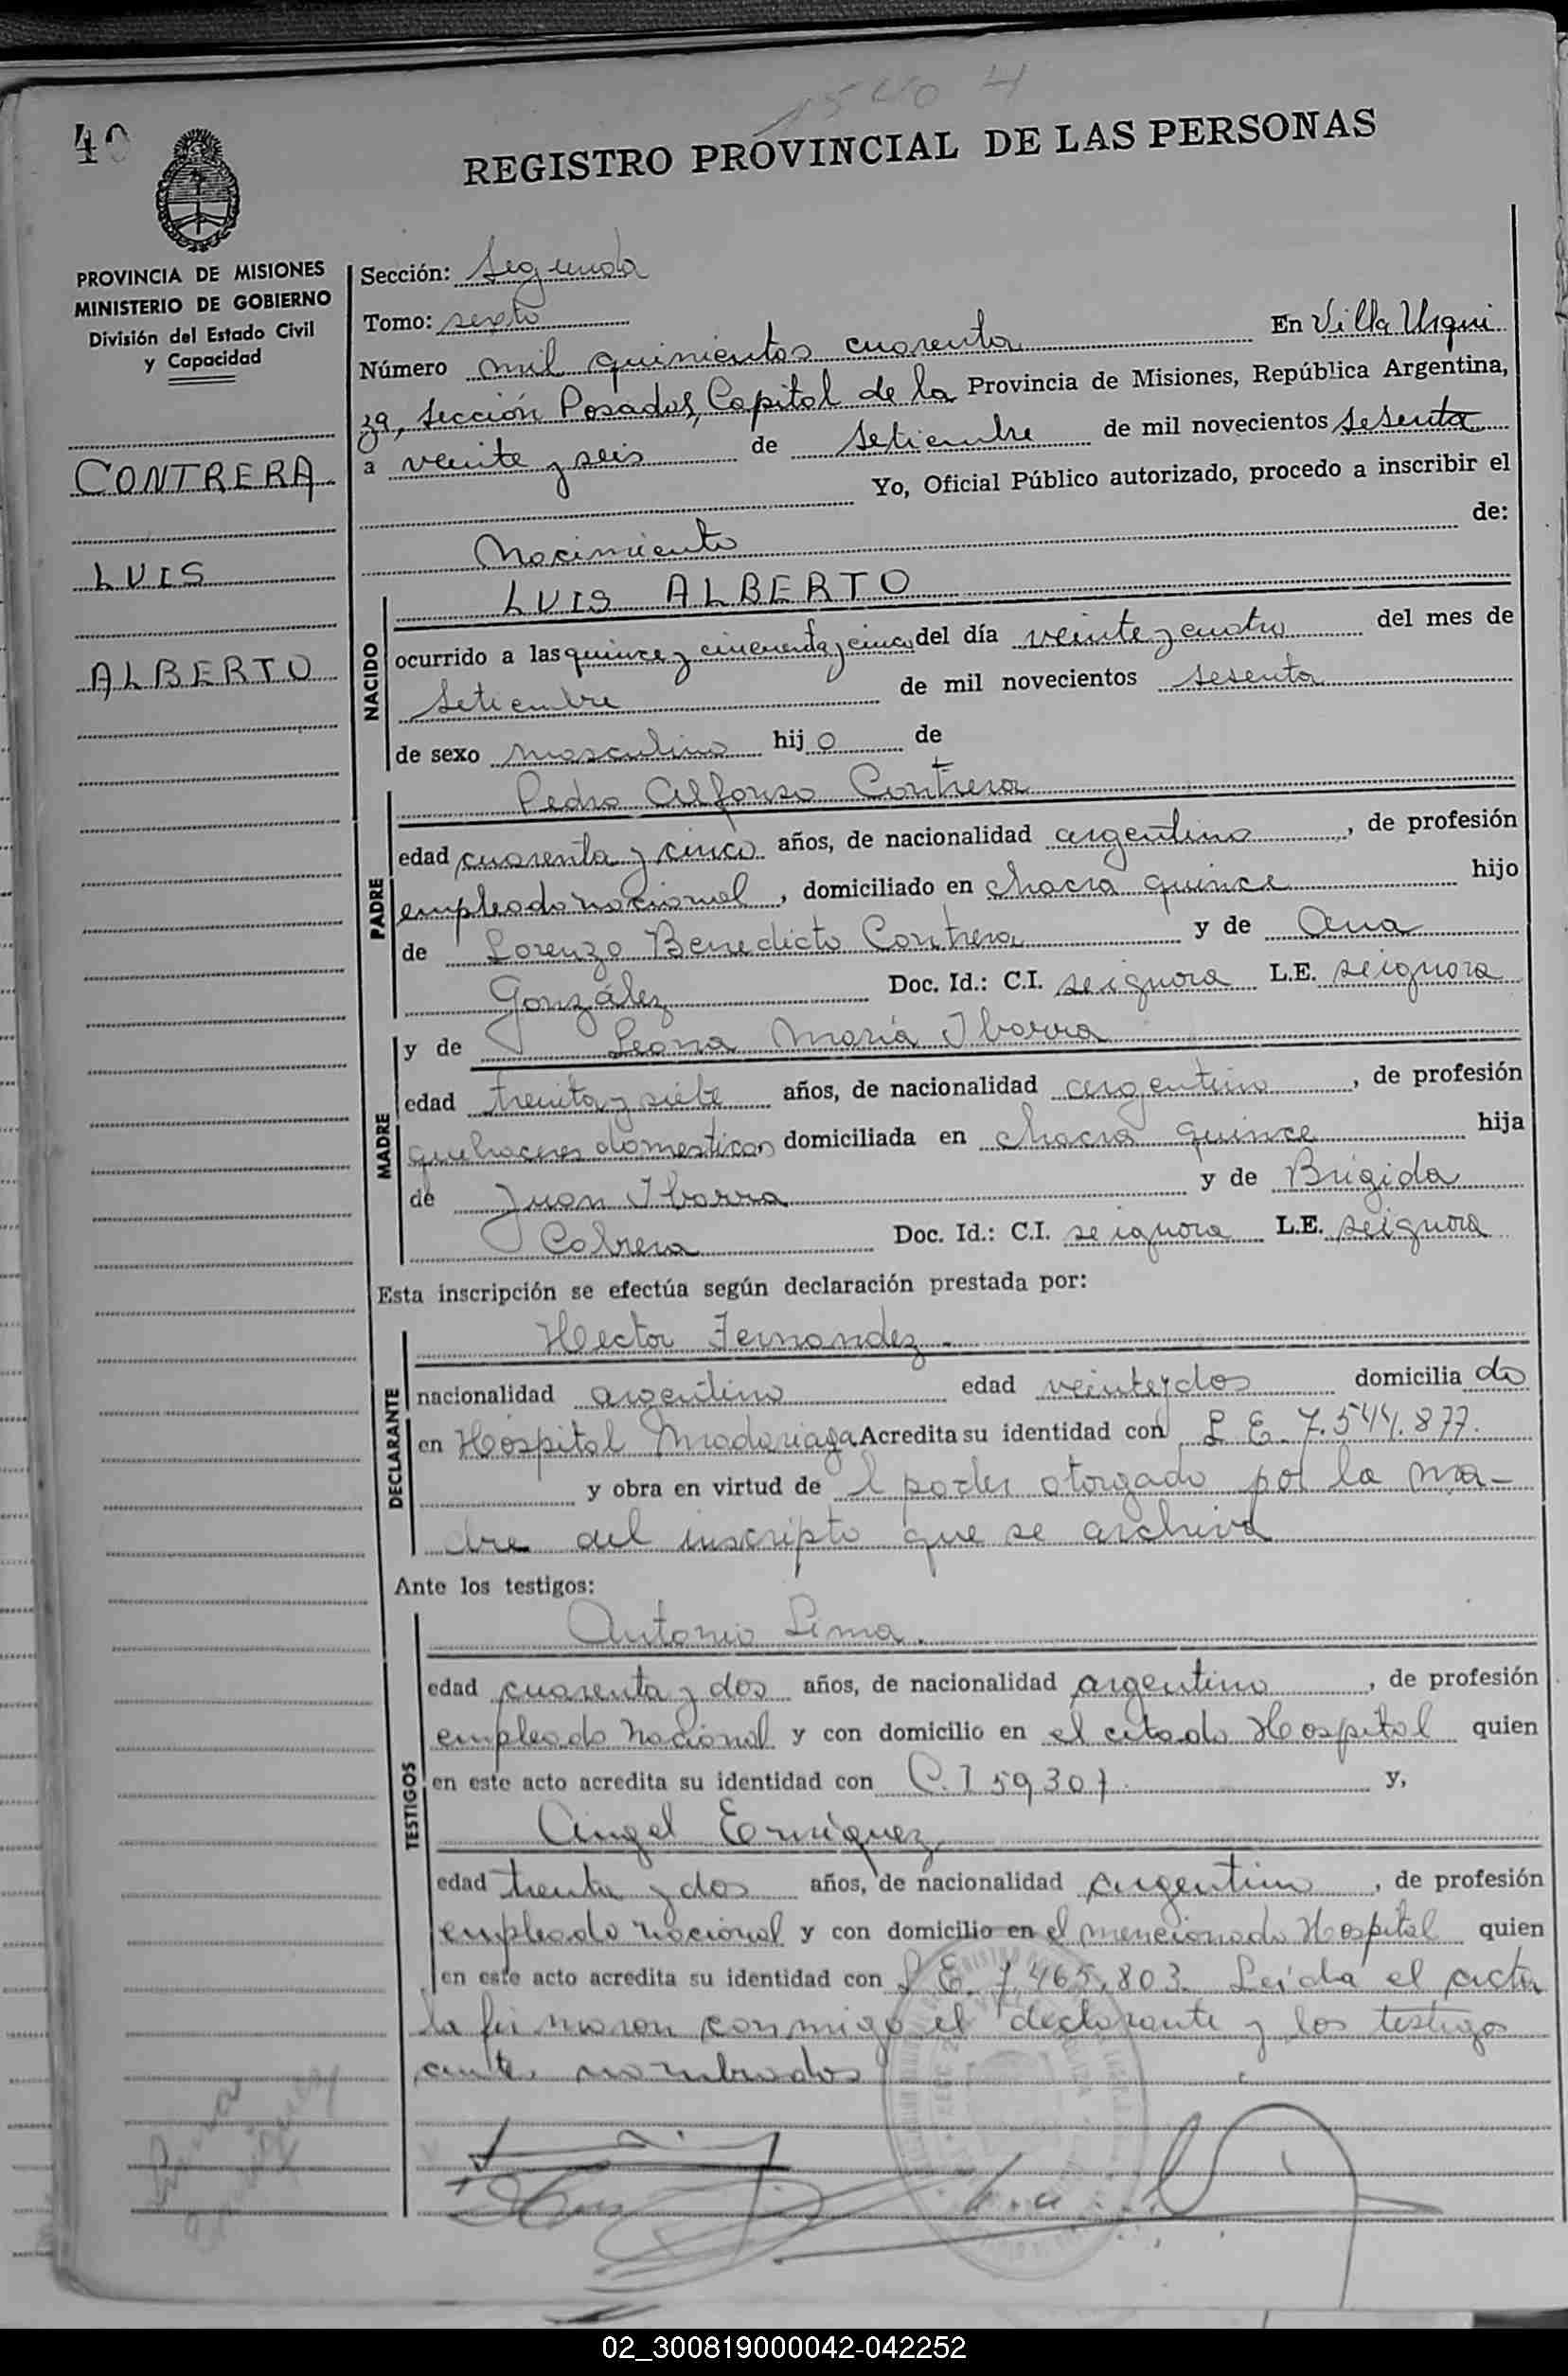 40
REGISTRO PROVINCIAL DE LAS PERSONAS
PROVINCIA DE MISIONES
MINISTERIO DE GOBIERNO
División del Estado Civil
y Capacidad
CONTRERA
LUIS
ALBERTO
Sección: Segunda
Tomo: sexto
Número mil quinientos cuarenta En Villa Urqui
za, Sección Posadas, Capital de la Provincia de Misiones, República Argentina,
a veinte y seis de Setiembre de mil novecientos sesenta
Yo, Oficial Público autorizado, procedo a inscribir el
Nacimiento de:
NACIDO
LUIS ALBERTO
ocurrido a las quince y cincuenta y cinco del día veinte y cuatro del mes de
Setiembre de mil novecientos sesenta
de sexo masculino hijo de
PADRE
Pedro Alfonso Contrera
edad cuarenta y cinco años, de nacionalidad argentino, de profesión
empleado nacional, domiciliado en chacra quince hijo
de Lorenzo Benedicto Contrera y de Ana
González Doc. Id.: C.I. se ignora L.E. se ignora
MADRE
y de Leona María Ibarra
edad treinta y siete años, de nacionalidad argentina, de profesión
quehaceres domesticos domiciliada en chacra quince hija
de Juan Ibarra y de Brígida
Cabrera Doc. Id.: C.I. se ignora L.E. se ignora
Esta inscripción se efectúa según declaración prestada por:
DECLARANTE
Hector Fernandez
nacionalidad argentino edad veinte y dos domiciliado
en Hospital Madariaga Acredita su identidad con L E 7.544.877.
y obra en virtud de l poder otorgado por la ma-
dre del inscripto que se archiva
Ante los testigos:
TESTIGOS
Antonio Lima.
edad cuarenta y dos años, de nacionalidad argentino, de profesión
empleado nacional y con domicilio en el citado Hospital quien
en este acto acredita su identidad con C.I 59307 y,
Angel Enriquez
edad trenta y dos años, de nacionalidad argentino, de profesión
empleado nacional y con domicilio en el mencionado Hospital quien
en este acto acredita su identidad con L E. 7.465.803. Leida el acta
la firmaron conmigo el declarante y los testigos
ante nombrados
02_300819000042-042252